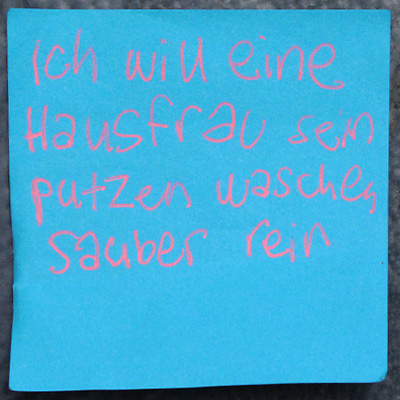 Ich will eine
Hausfrau sein
putzen waschen
sauber rein